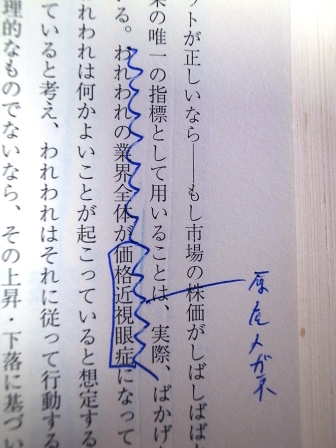 ットが正しいなら――もし市場の株価がしばしばば
業の唯一の指標として用いることは、実際、ばかげ
いる。われわれの業界全体が価格近視眼症になって
われわれは何かよいことが起こっていると想定する
ていると考え、われわれはそれに従って行動する
理的なものでないなら、その上昇・下落に基づい